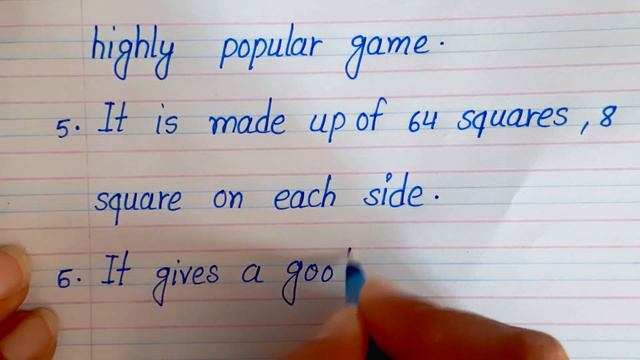 highly popular game.
5. It is made up of 64 squares, 8
square on each side.
6. It gives a goo